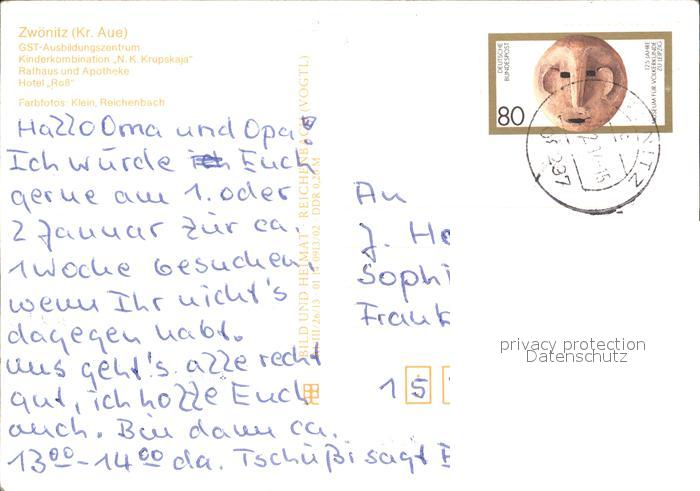 Zwönitz (Kr. Aue)
GST-Ausbildungszentrum
Kinderkombination „N. K. Krupskaja"
Rathaus und Apotheke
Hotel „Roß"
Farbfotos: Klein, Reichenbach
Hallo Oma und Opa!
Ich würde Euch
gerne am 1. oder
2 Januar zür ca.
1 Woche besuchen,
wenn Ihr nicht's
dagegen habt.
uns geht's alle recht
gut, ich hoffe Euch
auch. Bin dann ca.
13⁰⁰-14⁰⁰ da. Tschüß! sagt
BILD UND HEIMAT REICHENBACH (VOGTL)
01 14 0913/02 DDR
DEUTSCHE
BUNDESPOST
80
125 JAHRE
MUSEUM FÜR VÖLKERKUNDE
ZU LEIPZIG
An
J. He
Sophi
Frank
1 5
privacy protection
Datenschutz